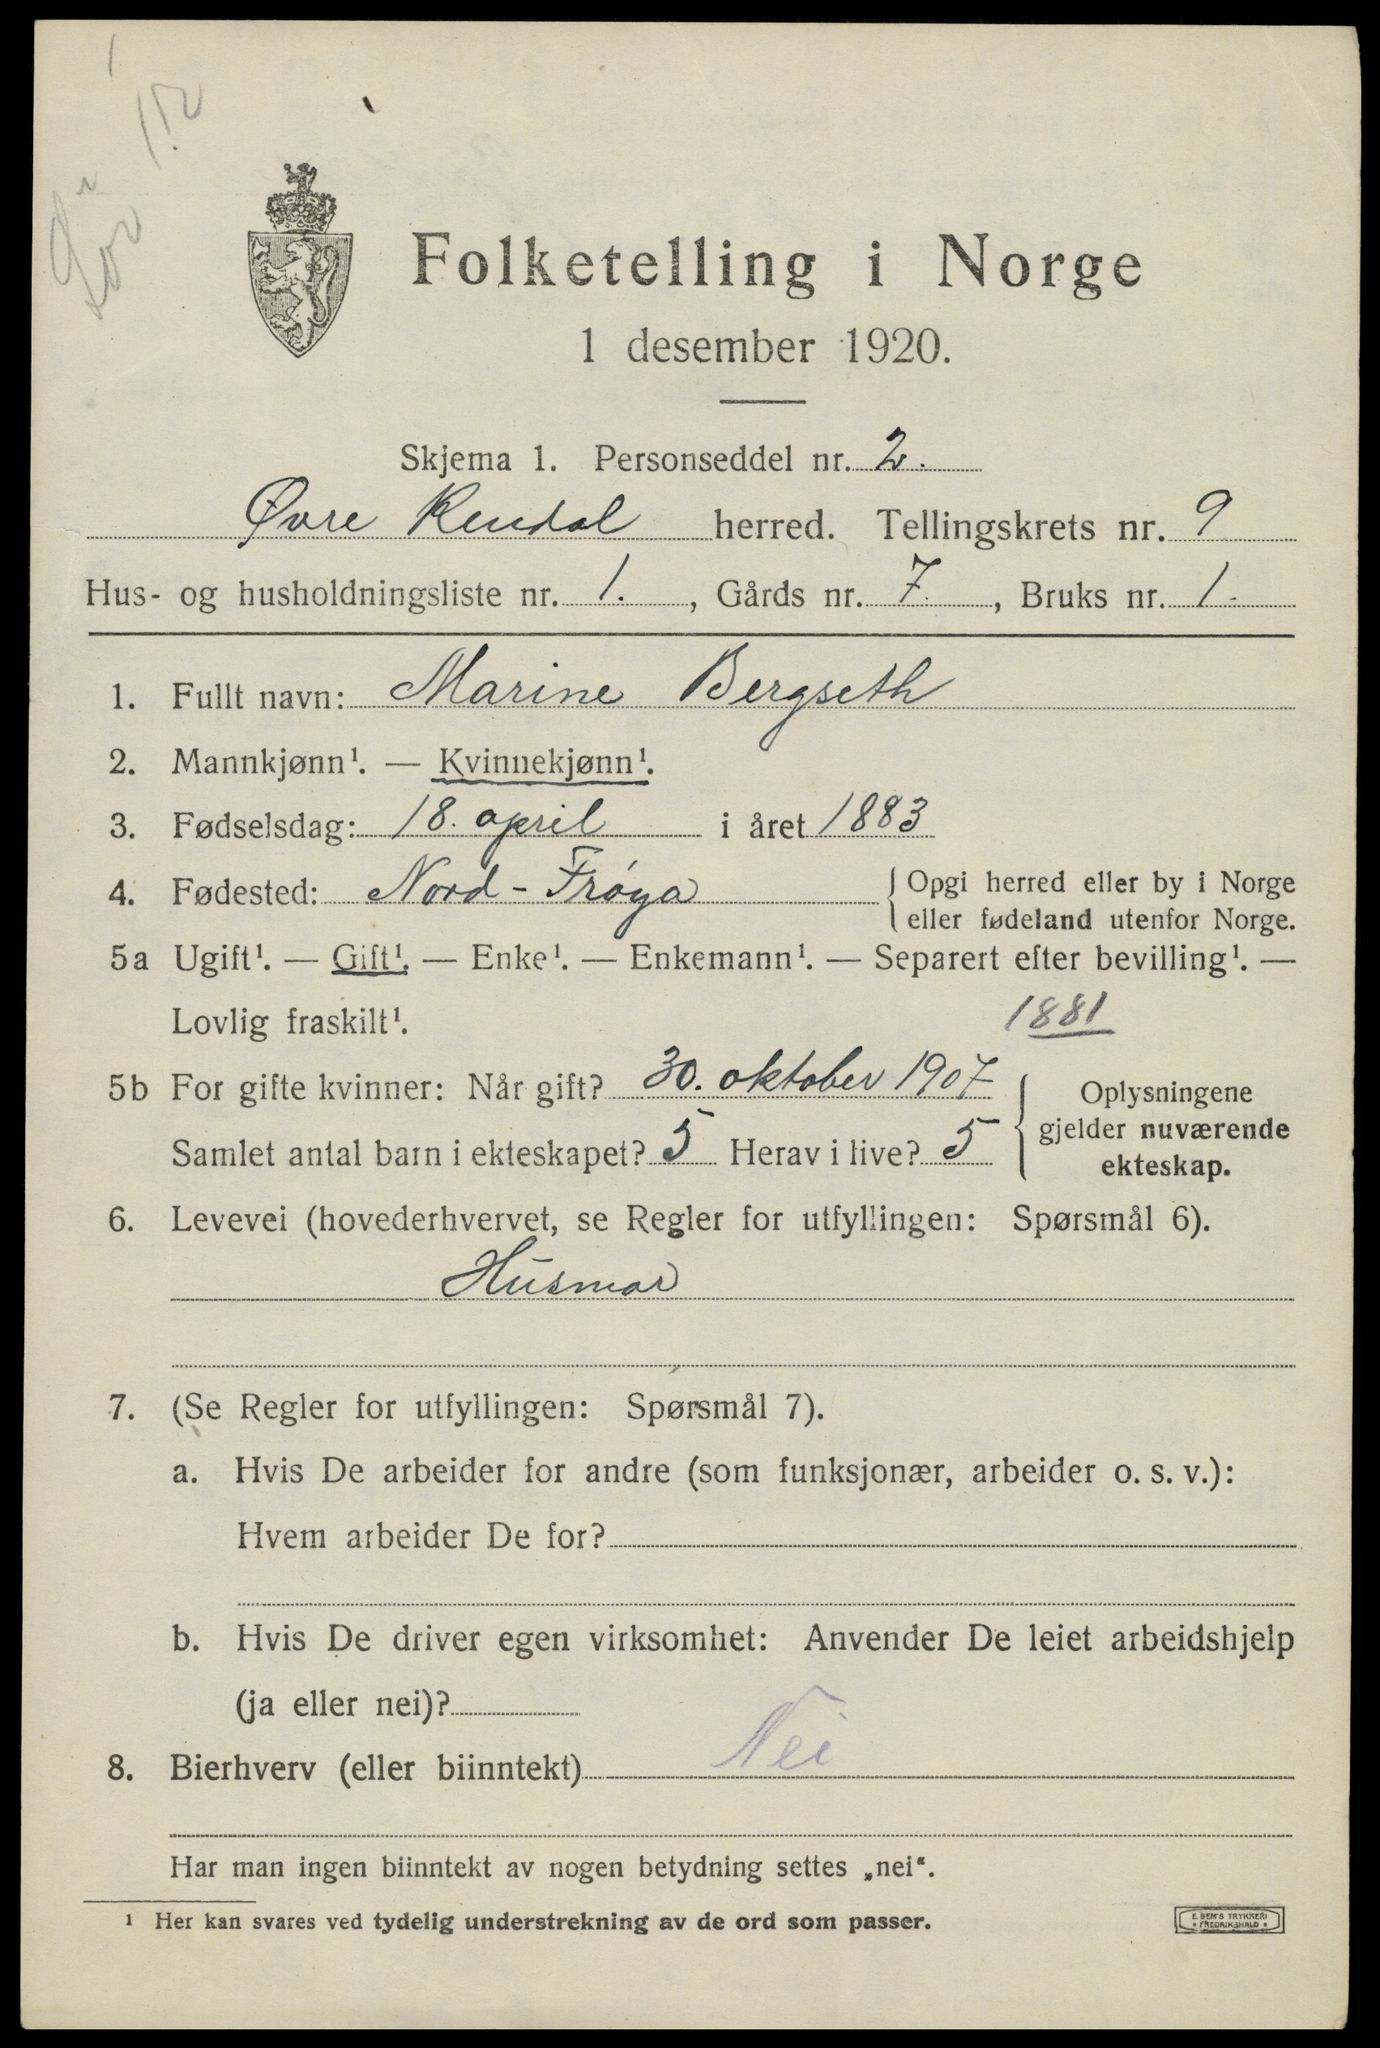 Folketelling i Norge
1 desember 1920.
Skjema 1. Personseddel nr. 2.
Øvre Rendal herred. Tellingskrets nr. 9
Hus- og husholdningsliste nr. 1., Gårds nr. 7., Bruks nr. 1.
1. Fullt navn: Marine Bergseth
2. Mannkjønn¹. — Kvinnekjønn¹.
3. Fødselsdag: 18. april i året 1883
4. Fødested: Nord-Frøya { Opgi herred eller by i Norge
eller fødeland utenfor Norge.
5a Ugift¹. — Gift¹. — Enke¹. — Enkemann¹. — Separert efter bevilling¹. —
Lovlig fraskilt¹. 1881
5b For gifte kvinner: Når gift? 30. oktober 1907
Samlet antal barn i ekteskapet? 5 Herav i live? 5
{ Oplysningene
gjelder nuværende
ekteskap.
6. Levevei (hovederhvervet, se Regler for utfyllingen: Spørsmål 6).
Husmor
7. (Se Regler for utfyllingen: Spørsmål 7).
a. Hvis De arbeider for andre (som funksjonær, arbeider o. s. v.):
Hvem arbeider De for?
b. Hvis De driver egen virksomhet: Anvender De leiet arbeidshjelp
(ja eller nei)?
8. Bierhverv (eller biinntekt) Nei
Har man ingen biinntekt av nogen betydning settes „nei“.
¹ Her kan svares ved tydelig understrekning av de ord som passer.
E. SEM'S TRYKKERI
• FREDRIKSHALD •